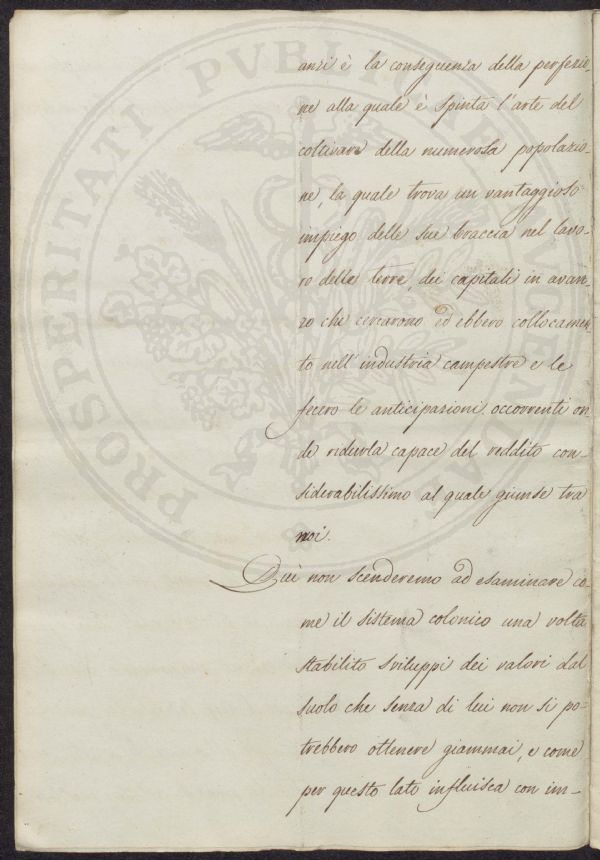 anzi è la conseguenza della perfezio-
ne alla quale è spinta l'arte del
coltivare della numerosa popolazio-
ne, la quale trova un vantaggioso
impiego delle sue braccia nel lavo-
ro delle terre, dei capitali in avan-
zo che cercarono ed ebbero collocamen-
to nell'industria campestre e le
fecero le anticipazioni occorrenti on
de ridurla capace del reddito con-
siderabilissimo al quale giunse tra
noi.
Quì non scenderemo ad esaminare co-
me il sistema colonico una volta
stabilito sviluppi dei valori dal
suolo che senza di lui non si po-
trebbero ottenere giammai, e come
per questo lato influisca con im-
PROSPERITATI PVBLICAE AVGENDAE